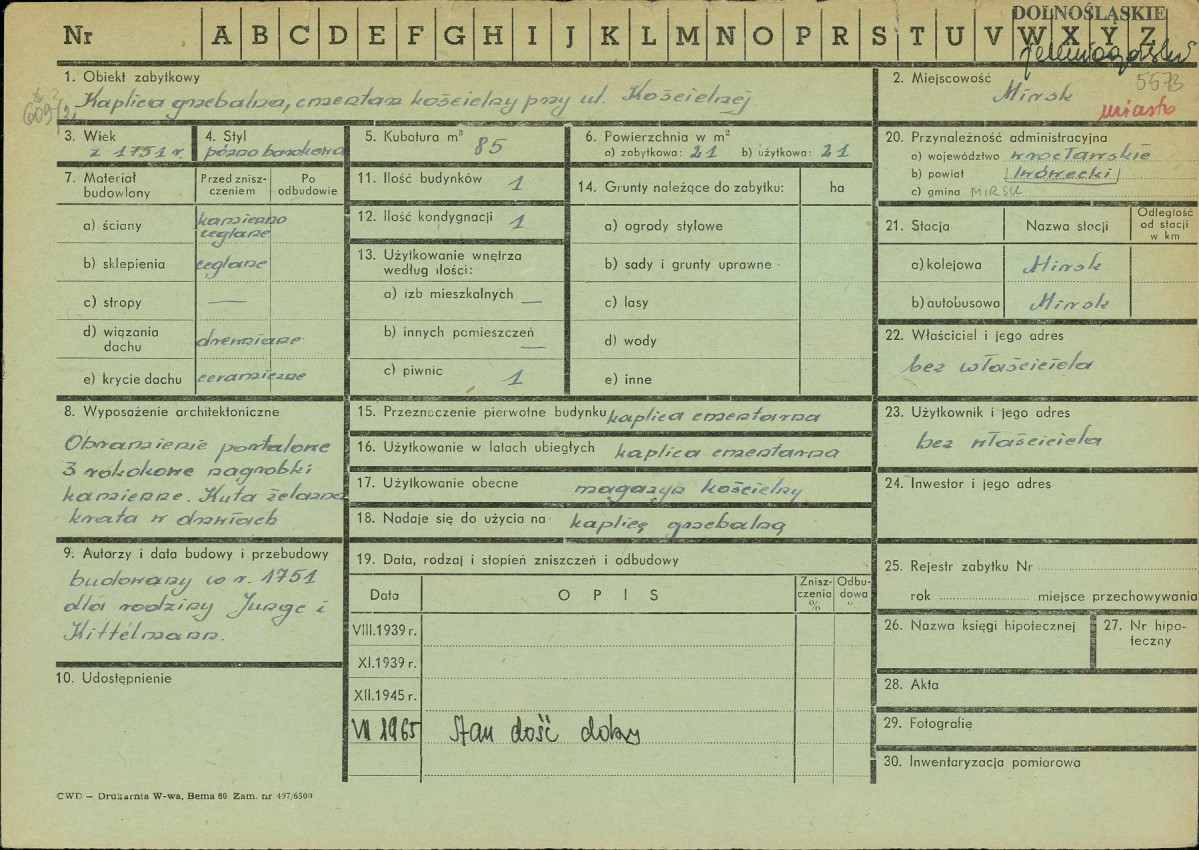 DOLNOŚLĄSKIE
Nr A B C D E F G H I J K L M N O P R S T U V W X Y Z
1. Obiekt zabytkowy
Kaplica grzebalna, cmentarz kościelny przy ul. Kościelnej
2. Miejscowość
Mirsk
5573
miasto
3. Wiek
z 1751 r.
4. Styl
późno barokowa
5. Kubatura m³ 85
6. Powierzchnia w m²
a) zabytkowa: 21 b) użytkowa: 21
7. Materiał budowlany
Przed zniszczeniem
Po odbudowie
a) ściany kamienno ceglane
b) sklepienia ceglane
c) stropy —
d) wiązania dachu drewniane
e) krycie dachu ceramiczne
8. Wyposażenie architektoniczne
Obramienie portalowe
3 rokokowe nagrobki
kamienne. Kuta żelazna
krata w drzwiach
9. Autorzy i data budowy i przebudowy
budowany w r. 1751
dla rodziny Junge i
Kittelmann.
10. Udostępnienie
11. Ilość budynków 1
12. Ilość kondygnacji 1
13. Użytkowanie wnętrza
według ilości:
a) izb mieszkalnych —
b) innych pomieszczeń —
c) piwnic 1
14. Grunty należące do zabytku: ha
a) ogrody stylowe
b) sady i grunty uprawne
c) lasy
d) wody
e) inne
15. Przeznaczenie pierwotne budynku kaplica cmentarna
16. Użytkowanie w latach ubiegłych kaplica cmentarna
17. Użytkowanie obecne magazyn kościelny
18. Nadaje się do użycia na kaplicę grzebalną
19. Data, rodzaj i stopień zniszczeń i odbudowy
Data
OPIS
Zniszczenia %
Odbudowa %
VIII.1939 r.
XI.1939 r.
XII.1945 r.
VII 1965 Stan dość dobry
20. Przynależność administracyjna
a) województwo wrocławskie
b) powiat lwówecki
c) gmina MIRSK
21. Stacja
Nazwa stacji
Odległość od stacji w km
a) kolejowa Mirsk
b) autobusowa Mirsk
22. Właściciel i jego adres
bez właściciela
23. Użytkownik i jego adres
bez właściciela
24. Inwestor i jego adres
25. Rejestr zabytku Nr
rok miejsce przechowywania
26. Nazwa księgi hipotecznej
27. Nr hipoteczny
28. Akta
29. Fotografie
30. Inwentaryzacja pomiarowa
CWD – Drukarnia W-wa, Bema 60 Zam. nr 497/6500